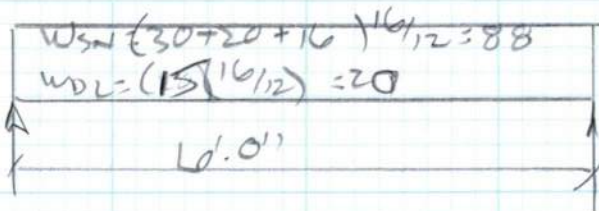 WSN = (30+20+16)16/12 = 88
WDL = (15)(16/12) = 20
6'.0"